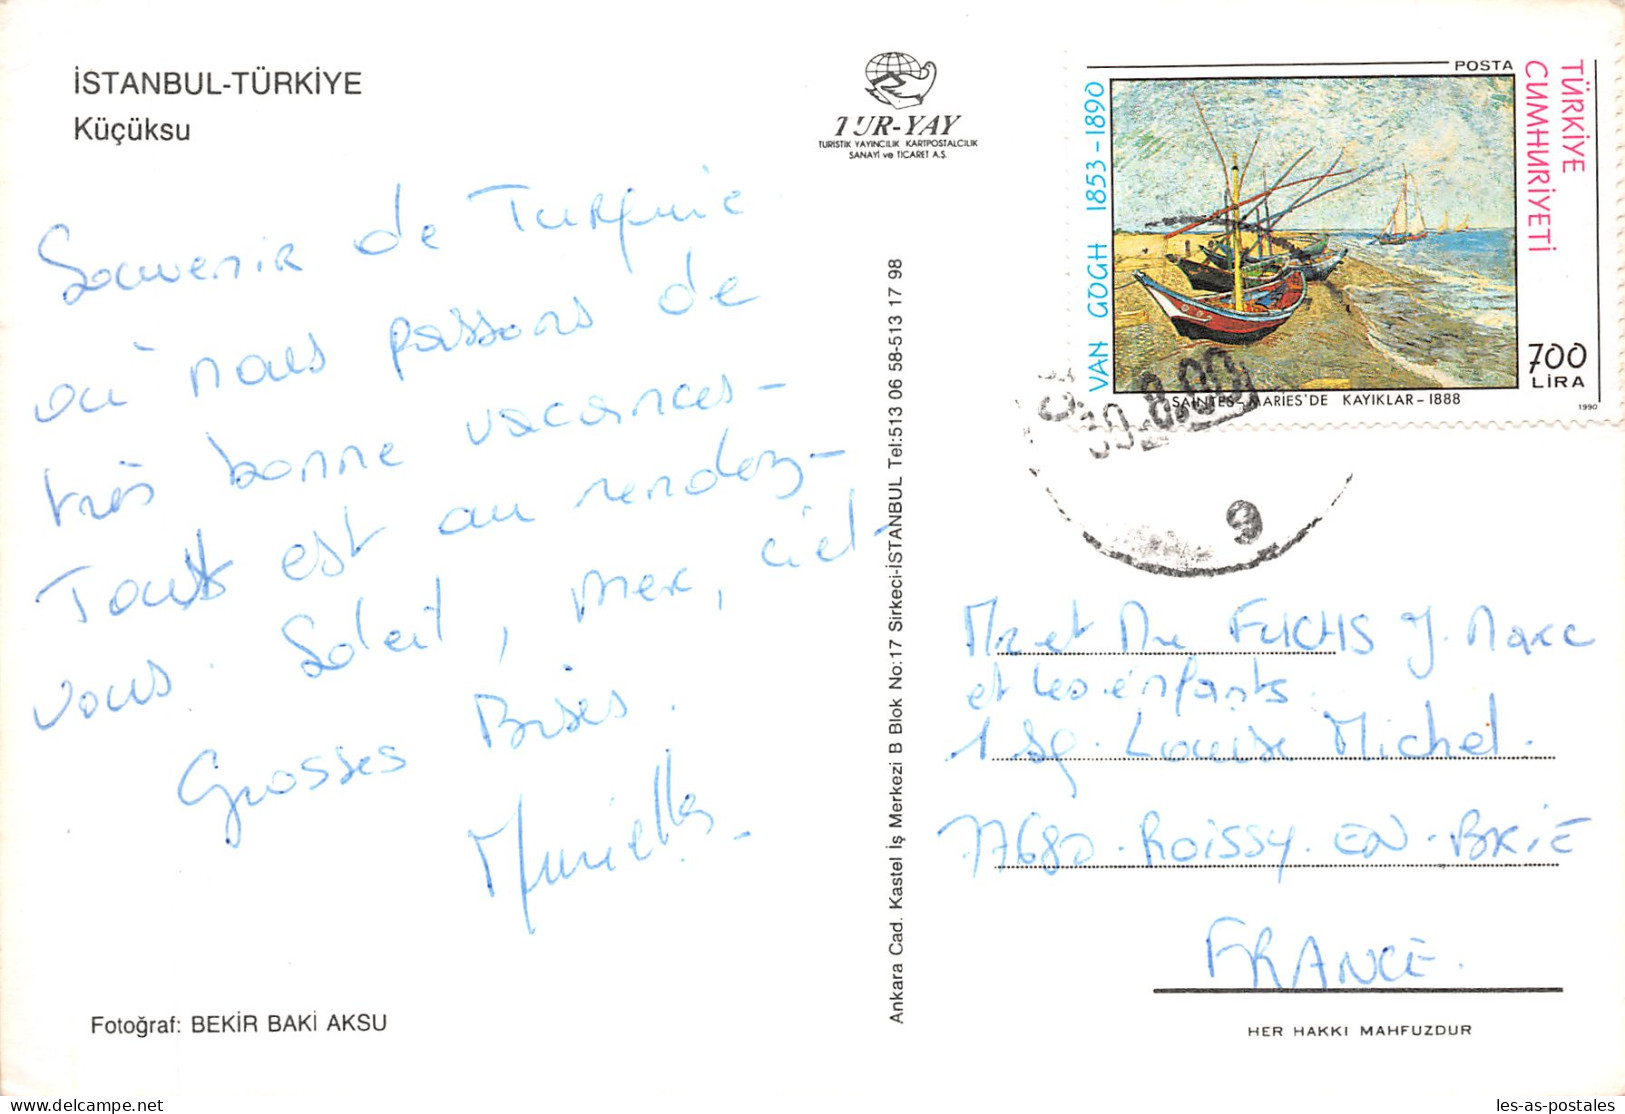 İSTANBUL-TÜRKİYE
Küçüksu
Souvenir de Turquie
où nous passons de
très bonne vacances-
Tout est au rendez-
vous. Soleil, mer, ciel-
Grosses Bises.
Murielle
Fotoğraf: BEKİR BAKİ AKSU
TUR-YAY
TURİSTİK YAYINCILIK KARTPOSTALCILIK
SANAYİ ve TİCARET A.Ş.
Ankara Cad. Kastel İş Merkezi B Blok No:17 Sirkeci-İSTANBUL Tel:513 06 58-513 17 98
VAN GOGH 1853-1890
POSTA
TÜRKİYE
CUMHURİYETİ
700
LİRA
SAINTES-MARIES'DE KAYIKLAR-1888
1990
9
Mr et Me FUCHS J. Marc
et les enfants.
1 sq. Louise Michel.
77680. Roissy. EN. BRIE
FRANCE.
HER HAKKI MAHFUZDUR
delcampe.net
les-as-postales